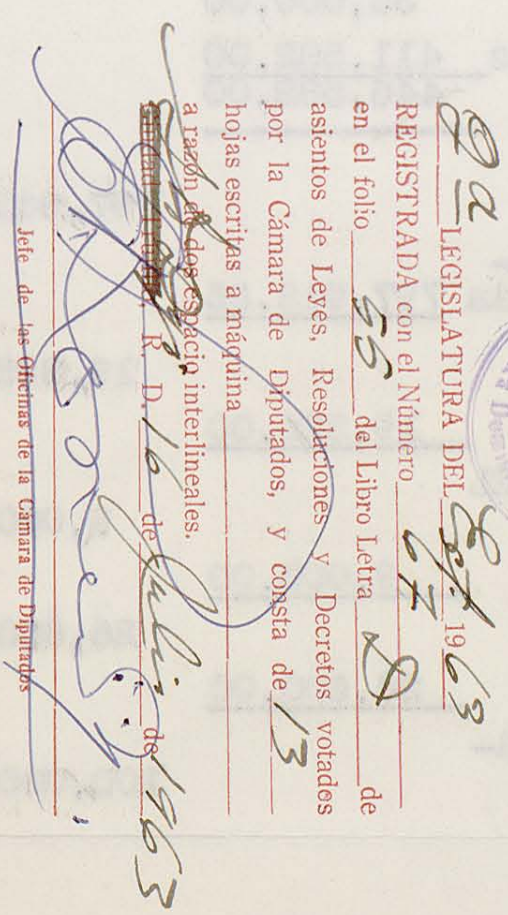 2a LEGISLATURA DEL Ext. 1963
REGISTRADA con el Número 67
en el folio 55 del Libro Letra D de
asientos de Leyes, Resoluciones y Decretos votados
por la Cámara de Diputados, y consta de 13
hojas escritas a máquina
a razón de dos espacio interlineales.
R. D. 16 de Julio de 1963
Jefe de las Oficinas de la Camara de Diputados